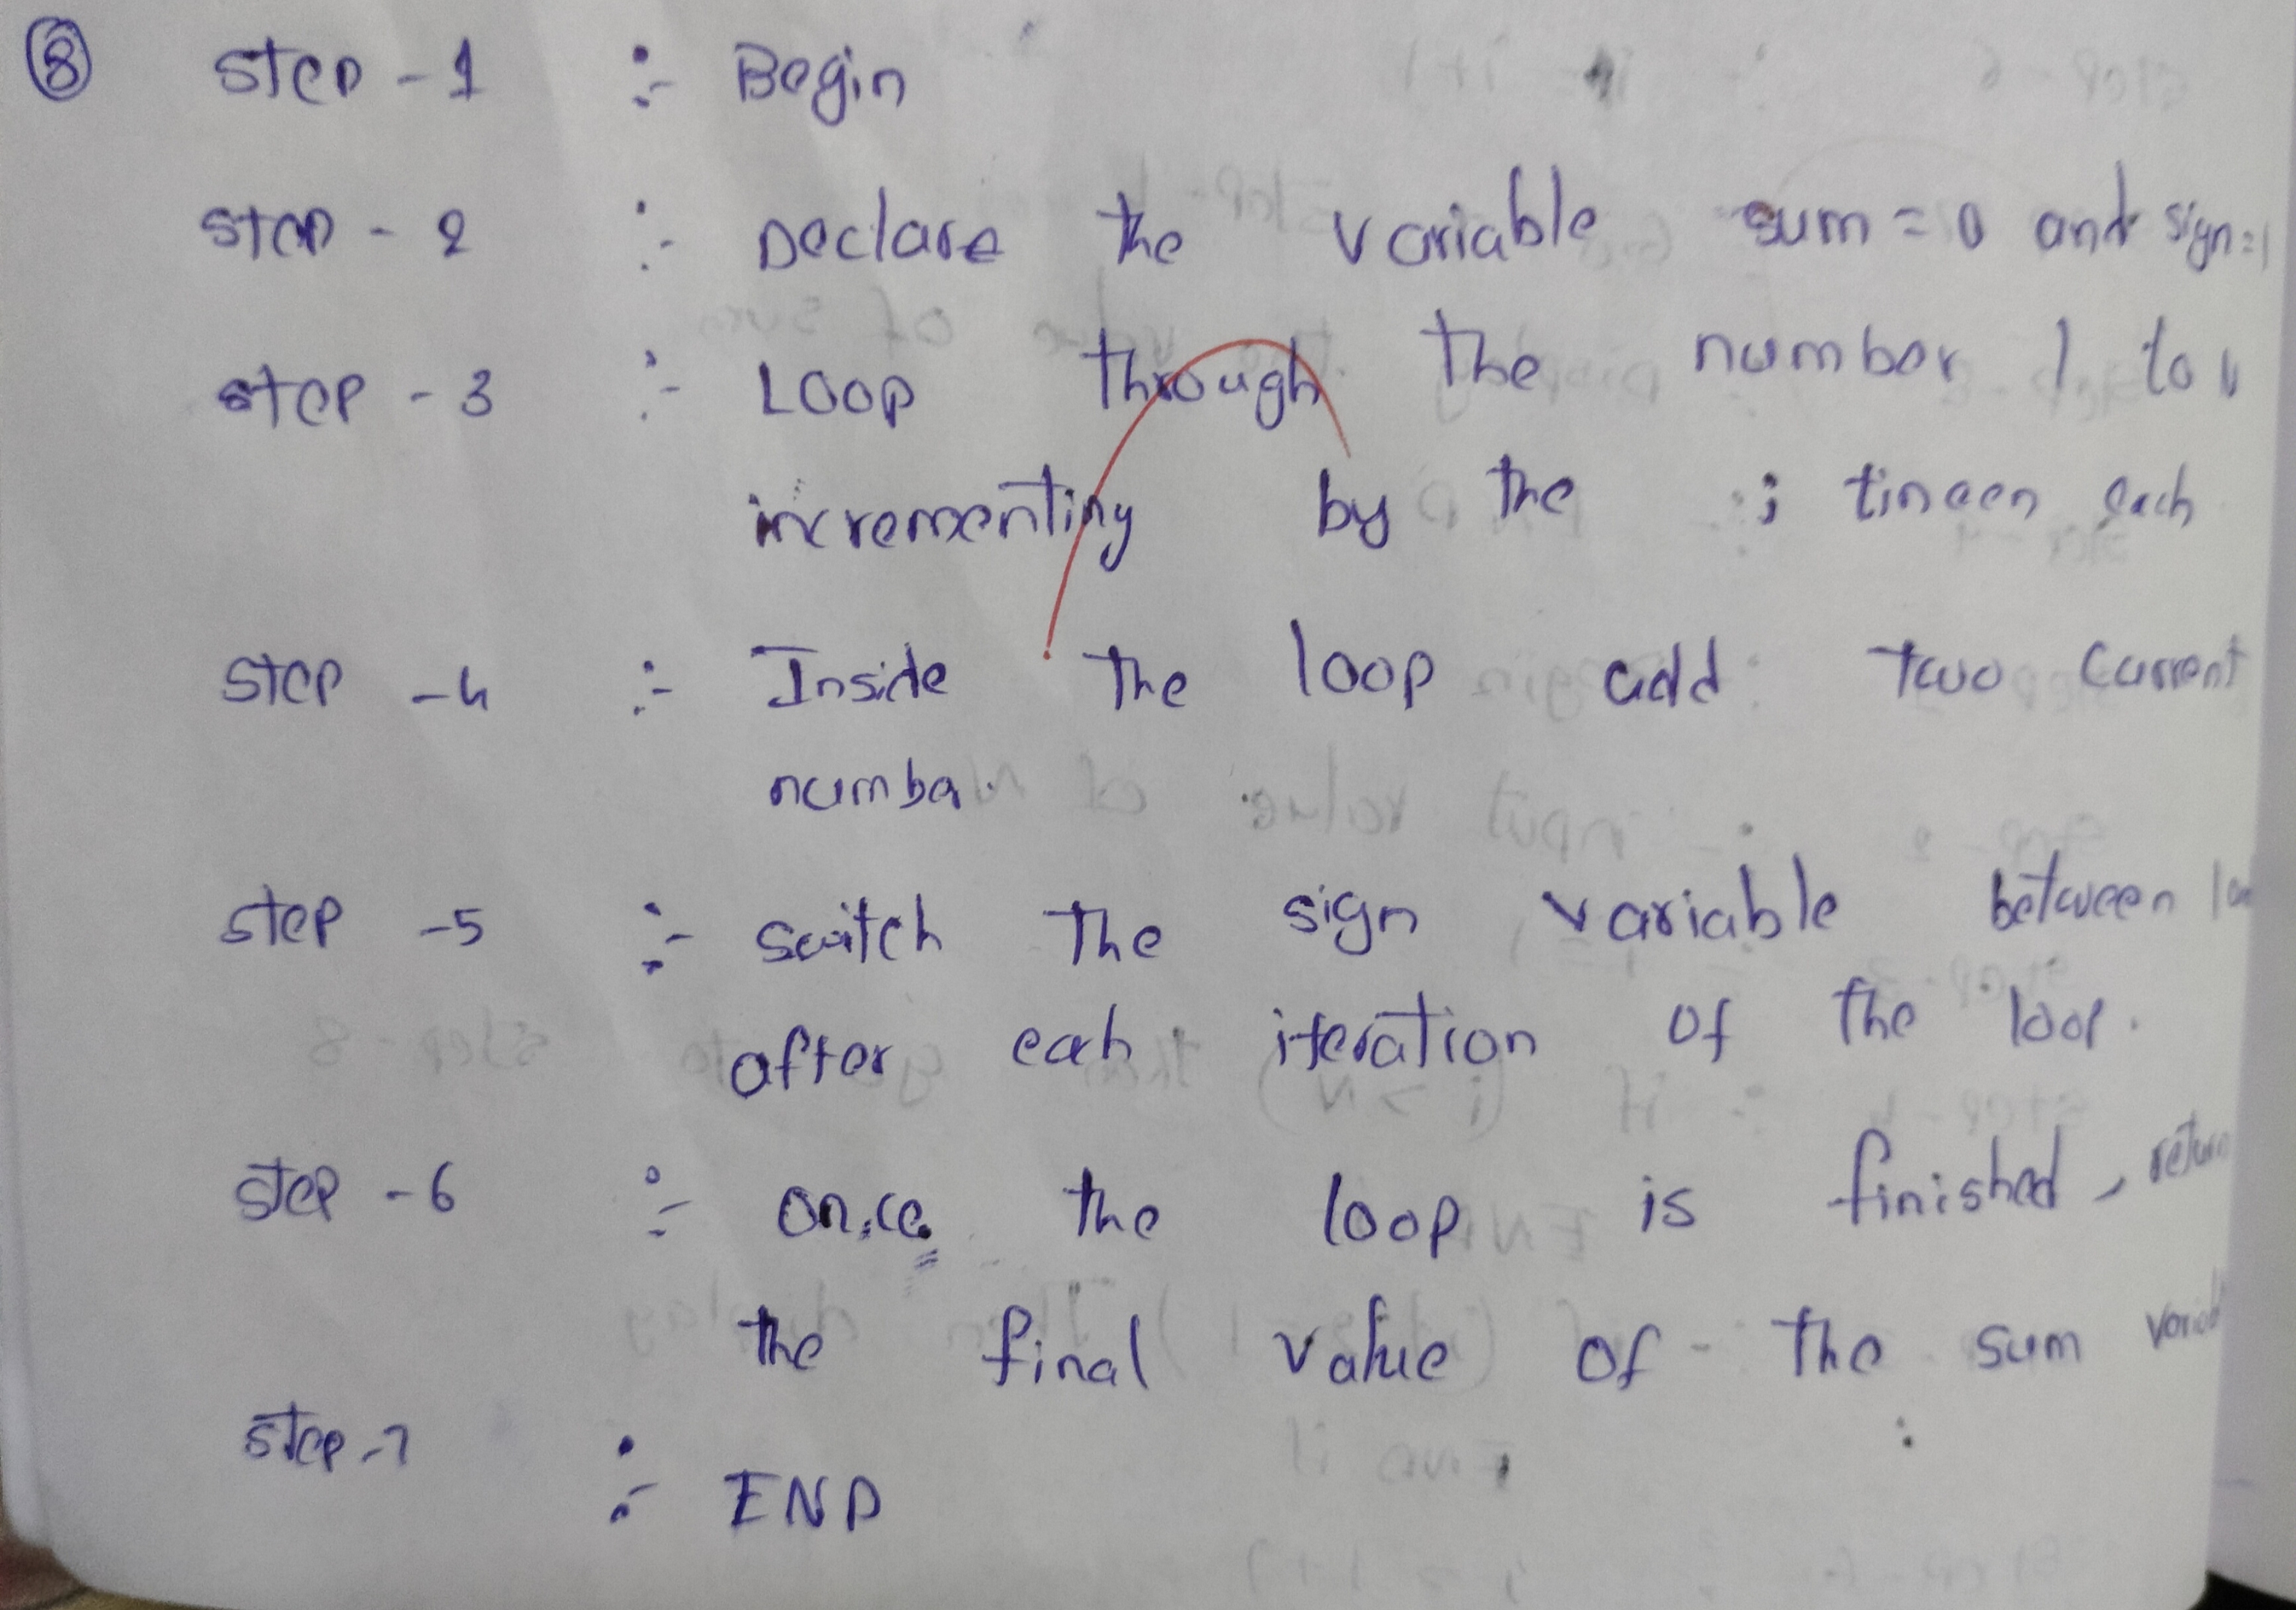 ⑧ step - 1 :- Begin
step - 2 :- Declare the variable sum = 0 and sign = 1
step - 3 :- Loop through the number 1 to
incrementing by the each
step - 4 :- Inside the loop add two current
number.
step - 5 :- switch the sign variable between 1
after eah iteration of the loop.
step - 6 :- once the loop is finished, return
the final value of the sum variabl
step - 7 :- END